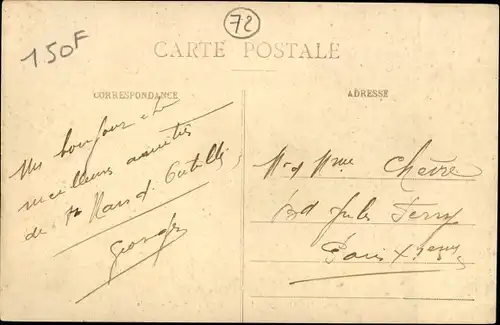 150F
72
CARTE POSTALE
CORRESPONDANCE
ADRESSE
Un bonjour et
meilleures amitiés
de St Mars d' Outillé
Georges
Mr et Mme Chèvre
Bd Jules Ferry
Paris X